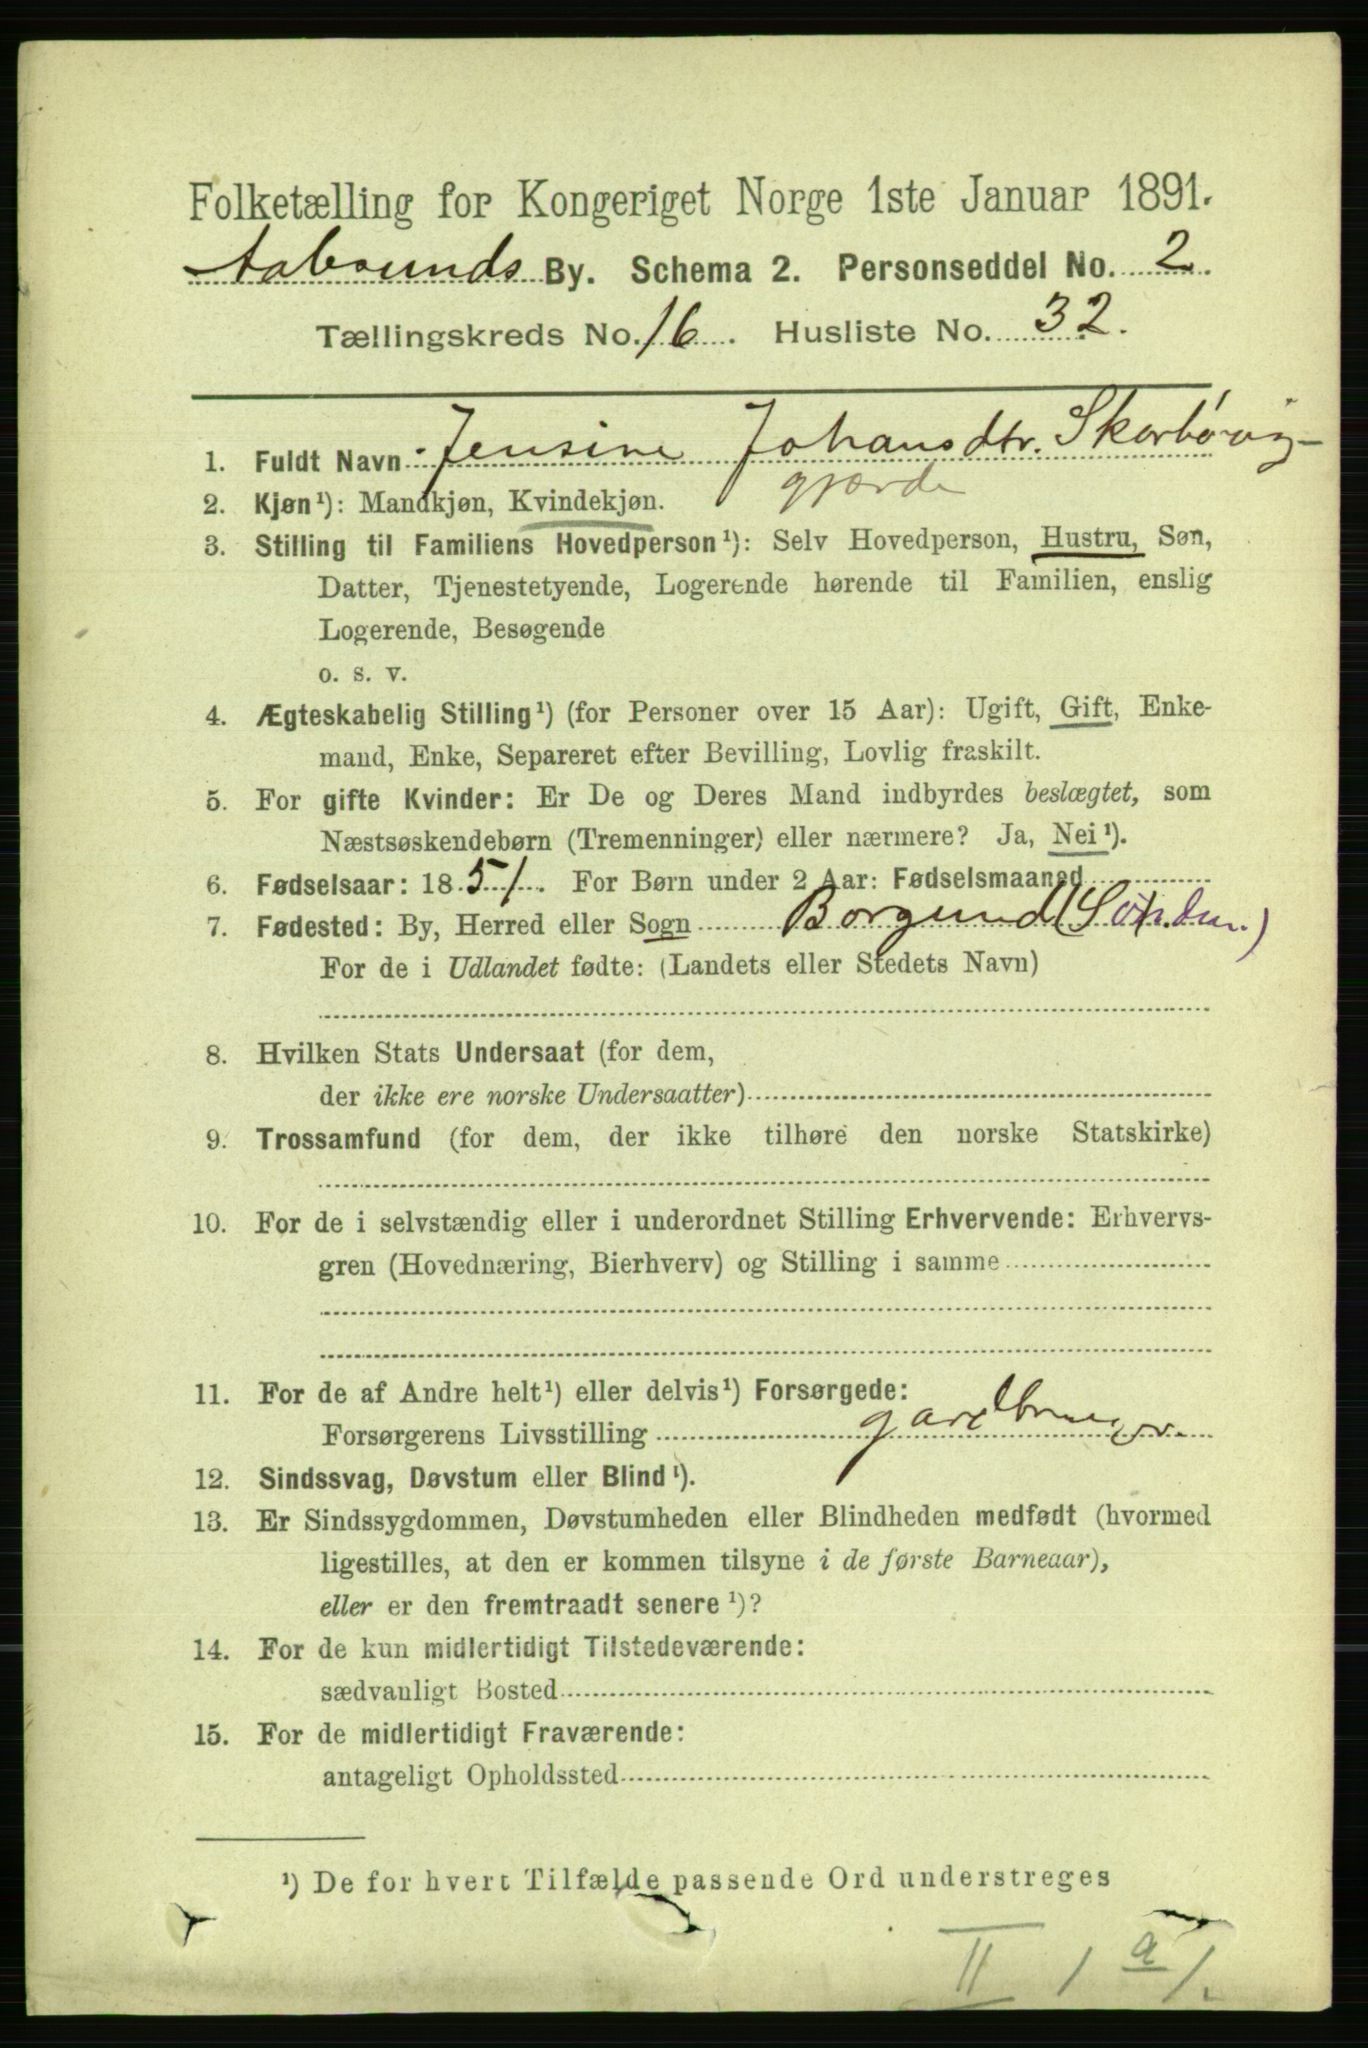 Folketælling for Kongeriget Norge 1ste Januar 1891.
Aalesunds By. Schema 2. Personseddel No. 2.
Tællingskreds No. 16. Husliste No. 32.
1. Fuldt Navn Jensine Johansdtr. Skorbøvig-
gjærde
2. Kjøn¹): Mandkjøn, Kvindekjøn.
3. Stilling til Familiens Hovedperson¹): Selv Hovedperson, Hustru, Søn,
Datter, Tjenestetyende, Logerende hørende til Familien, enslig
Logerende, Besøgende
o. s. v.
4. Ægteskabelig Stilling¹) (for Personer over 15 Aar): Ugift, Gift, Enke-
mand, Enke, Separeret efter Bevilling, Lovlig fraskilt.
5. For gifte Kvinder: Er De og Deres Mand indbyrdes beslægtet, som
Næstsøskendebørn (Tremenninger) eller nærmere? Ja, Nei¹).
6. Fødselsaar: 1851. For Børn under 2 Aar: Fødselsmaaned
7. Fødested: By, Herred eller Sogn Borgund
For de i Udlandet fødte: (Landets eller Stedets Navn)
8. Hvilken Stats Undersaat (for dem,
der ikke ere norske Undersaatter)
9. Trossamfund (for dem, der ikke tilhøre den norske Statskirke)
10. For de i selvstændig eller i underordnet Stilling Erhvervende: Erhvervs-
gren (Hovednæring, Bierhverv) og Stilling i samme
11. For de af Andre helt¹) eller delvis¹) Forsørgede:
Forsørgerens Livsstilling gardbruger.
12. Sindssvag, Døvstum eller Blind¹).
13. Er Sindssygdommen, Døvstumheden eller Blindheden medfødt (hvormed
ligestilles, at den er kommen tilsyne i de første Barneaar),
eller er den fremtraadt senere¹)?
14. For de kun midlertidigt Tilstedeværende:
sædvanligt Bosted
15. For de midlertidigt Fraværende:
antageligt Opholdssted
¹) De for hvert Tilfælde passende Ord understreges
II 1 a 1.